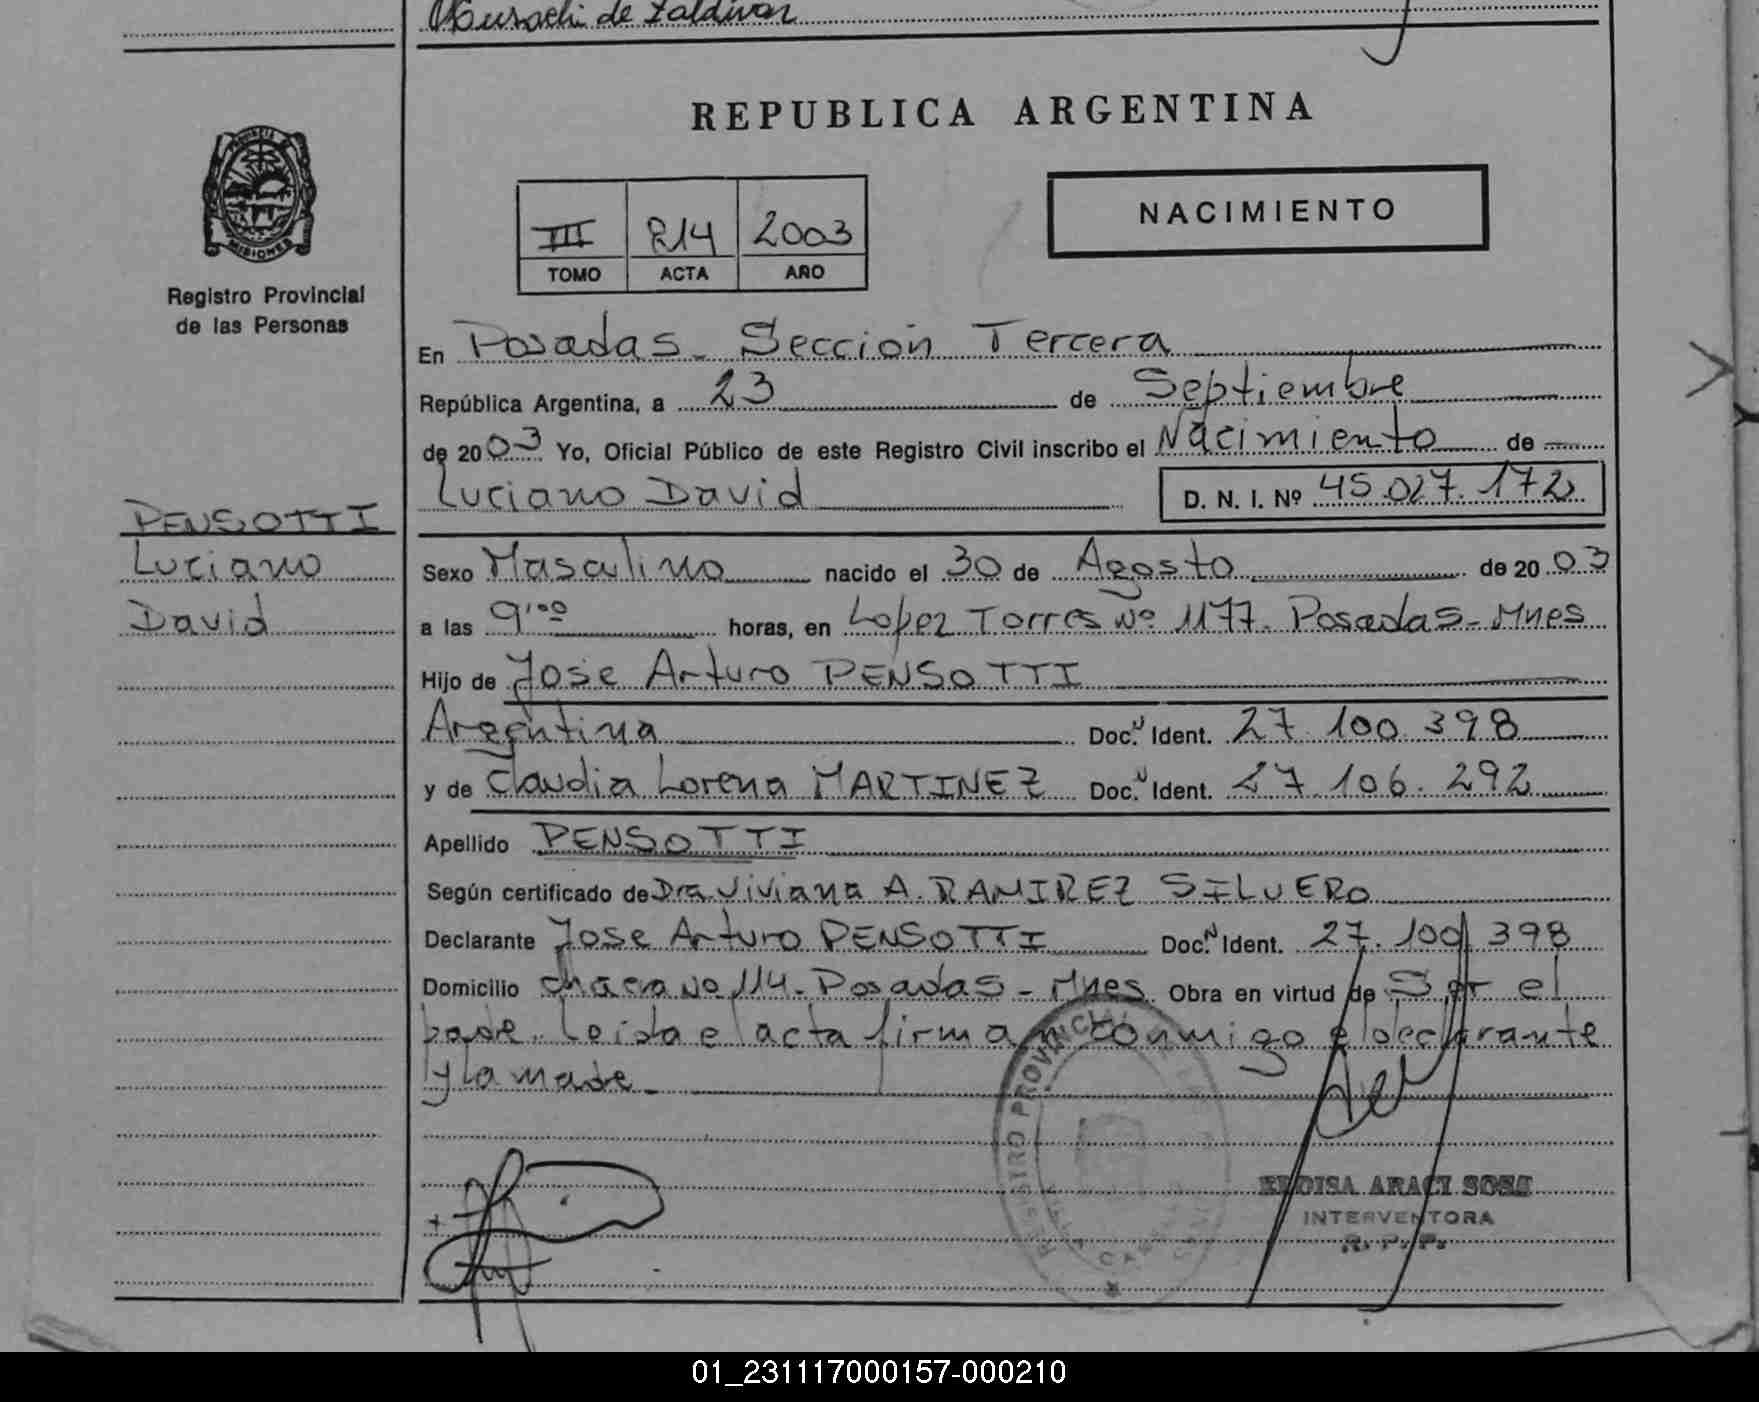 Mussachi de Zaldivar
REPUBLICA ARGENTINA
NACIMIENTO
III 214 2003
TOMO ACTA AÑO
MISIONES
Registro Provincial
de las Personas
En Posadas - Sección Tercera
República Argentina, a 23 de Septiembre
de 2003 Yo, Oficial Público de este Registro Civil inscribo el Nacimiento de
Luciano David D. N. I. Nº 45.027.172
PENSOTTI
Luciano
David
Sexo Masculino nacido el 30 de Agosto de 2003
a las 9'00 horas, en Lopez Torres Nº 1177. Posadas - Mnes
Hijo de Jose Arturo PENSOTTI
Argentina Doc. N Ident. 27.100.398
y de Claudia Lorena MARTINEZ Doc. N Ident. 27.106.292
Apellido PENSOTTI
Según certificado de Dra. Viviana A. RAMIREZ SILVERO
Declarante Jose Arturo PENSOTTI Doc. N Ident. 27.100.398
Domicilio chacra Nº 114. Posadas - Mnes Obra en virtud de Ser el
padre. Leida el acta firman conmigo el declarante
y la madre
REGISTRO PROVINCIAL
ELOISA ARACI SOSA
INTERVENTORA
R. P. P.
01_231117000157-000210